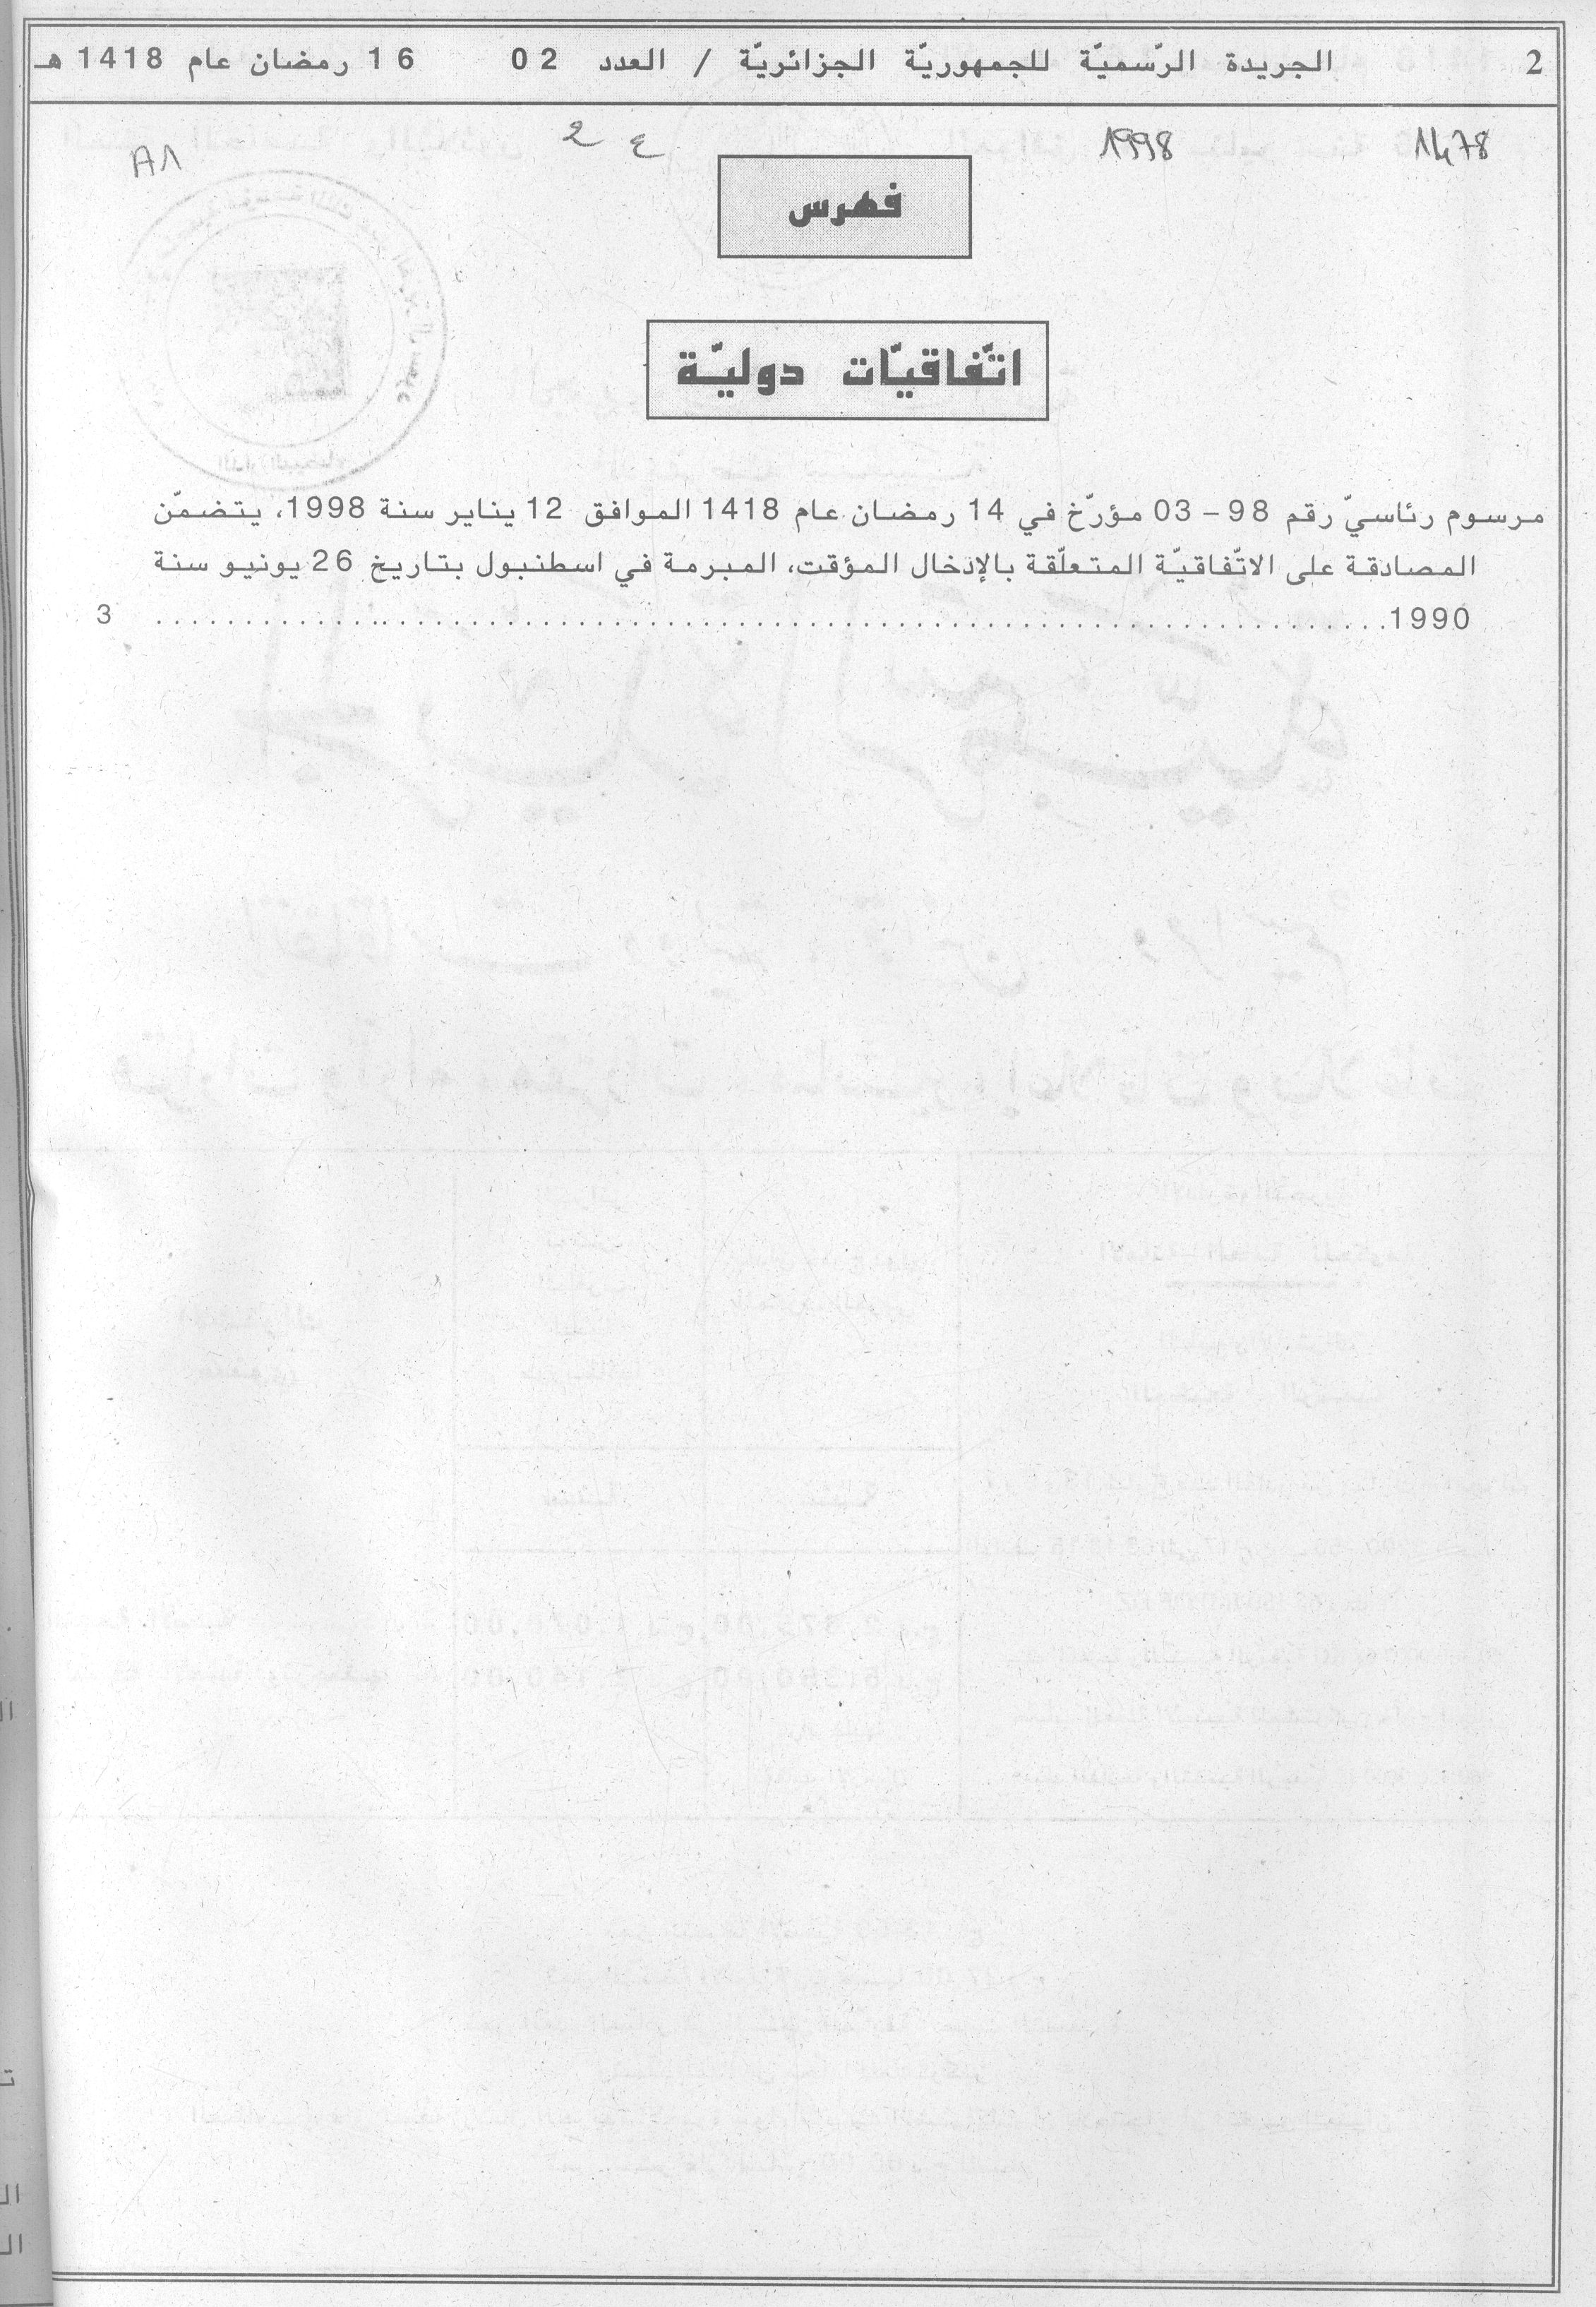 2 الجريدة الرّسميّة للجمهوريّة الجزائريّة / العدد 02 16 رمضان عام 1418 هـ
1478 1998 ع 2 A1
فهرس
اتّفاقيّات دوليّة
مرسوم رئاسيّ رقم 98 – 03 مؤرّخ في 14 رمضان عام 1418 الموافق 12 يناير سنة 1998، يتضمّن
المصادقة على الاتّفاقيّة المتعلّقة بالإدخال المؤقت، المبرمة في اسطنبول بتاريخ 26 يونيو سنة
1990 3